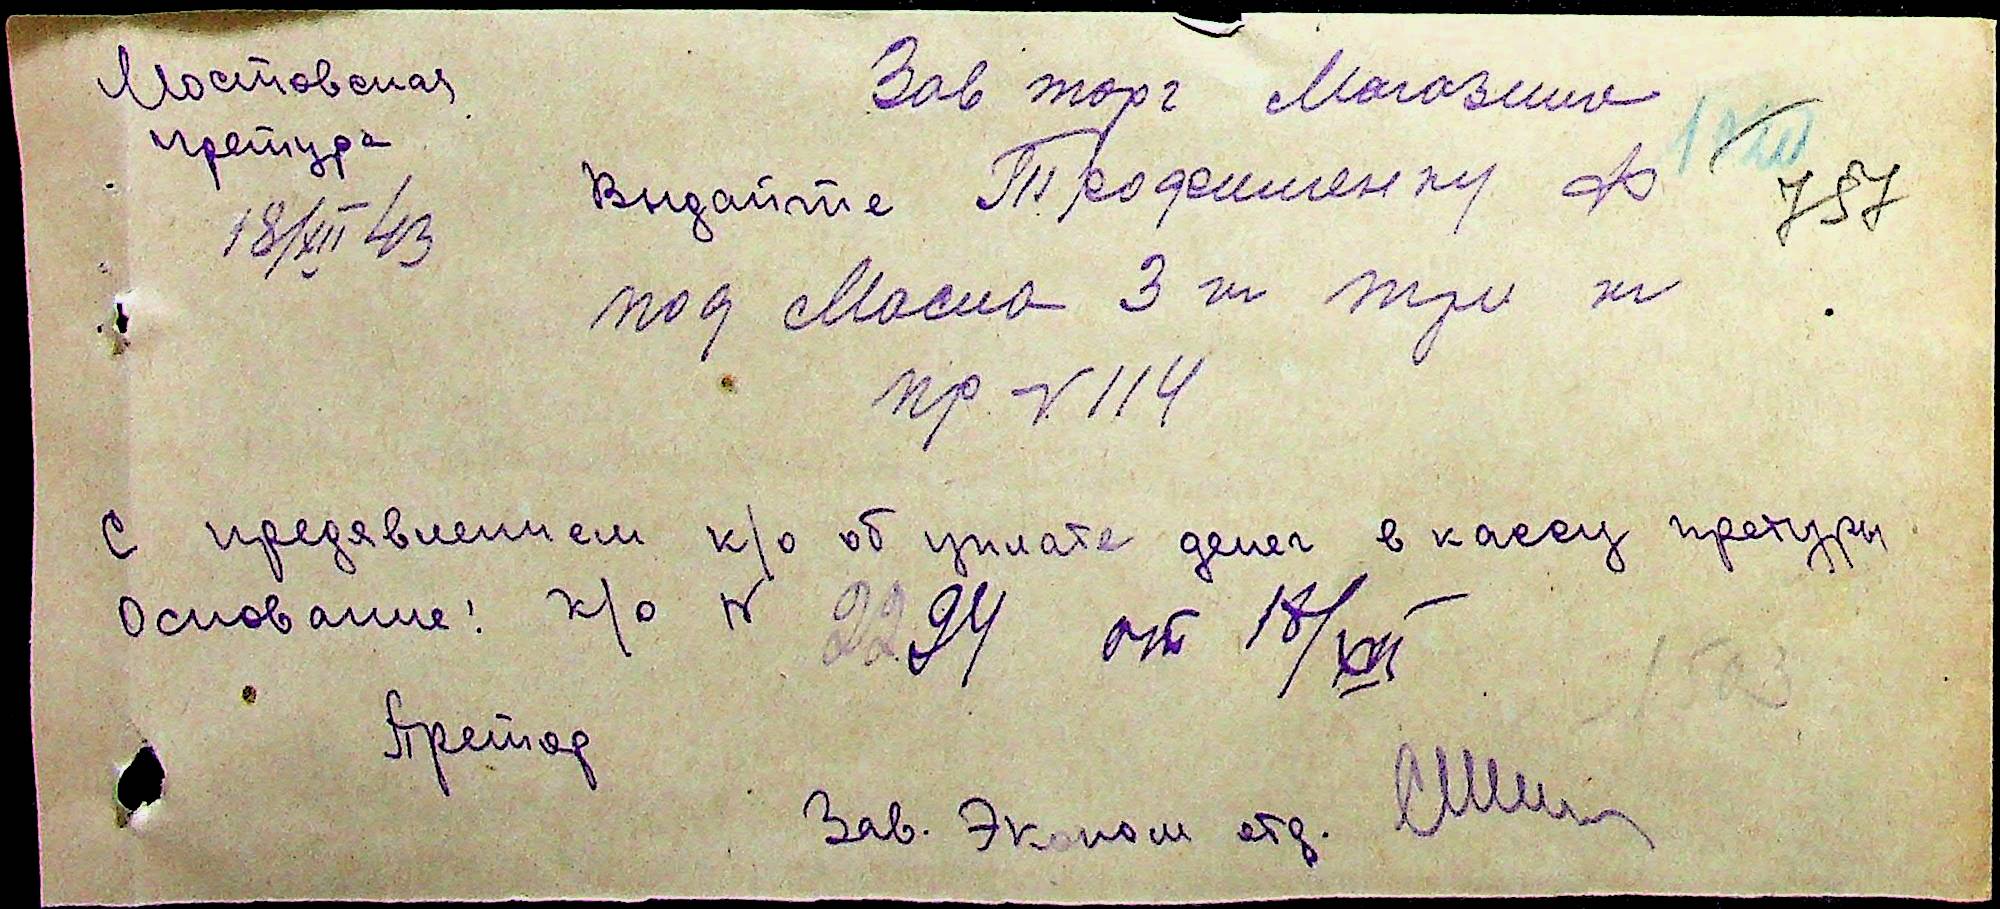 Мостовская
претура
18/XII 43
Зав торг Магазина
Выдайте Трофименку Ф
757
под Масла 3 кг три кг
пр № 114
С предявлением к/о об уплате денег в кассу претуры
Основание: к/о № 2294 от 18/XII
Претор
Зав. Эконом отд.